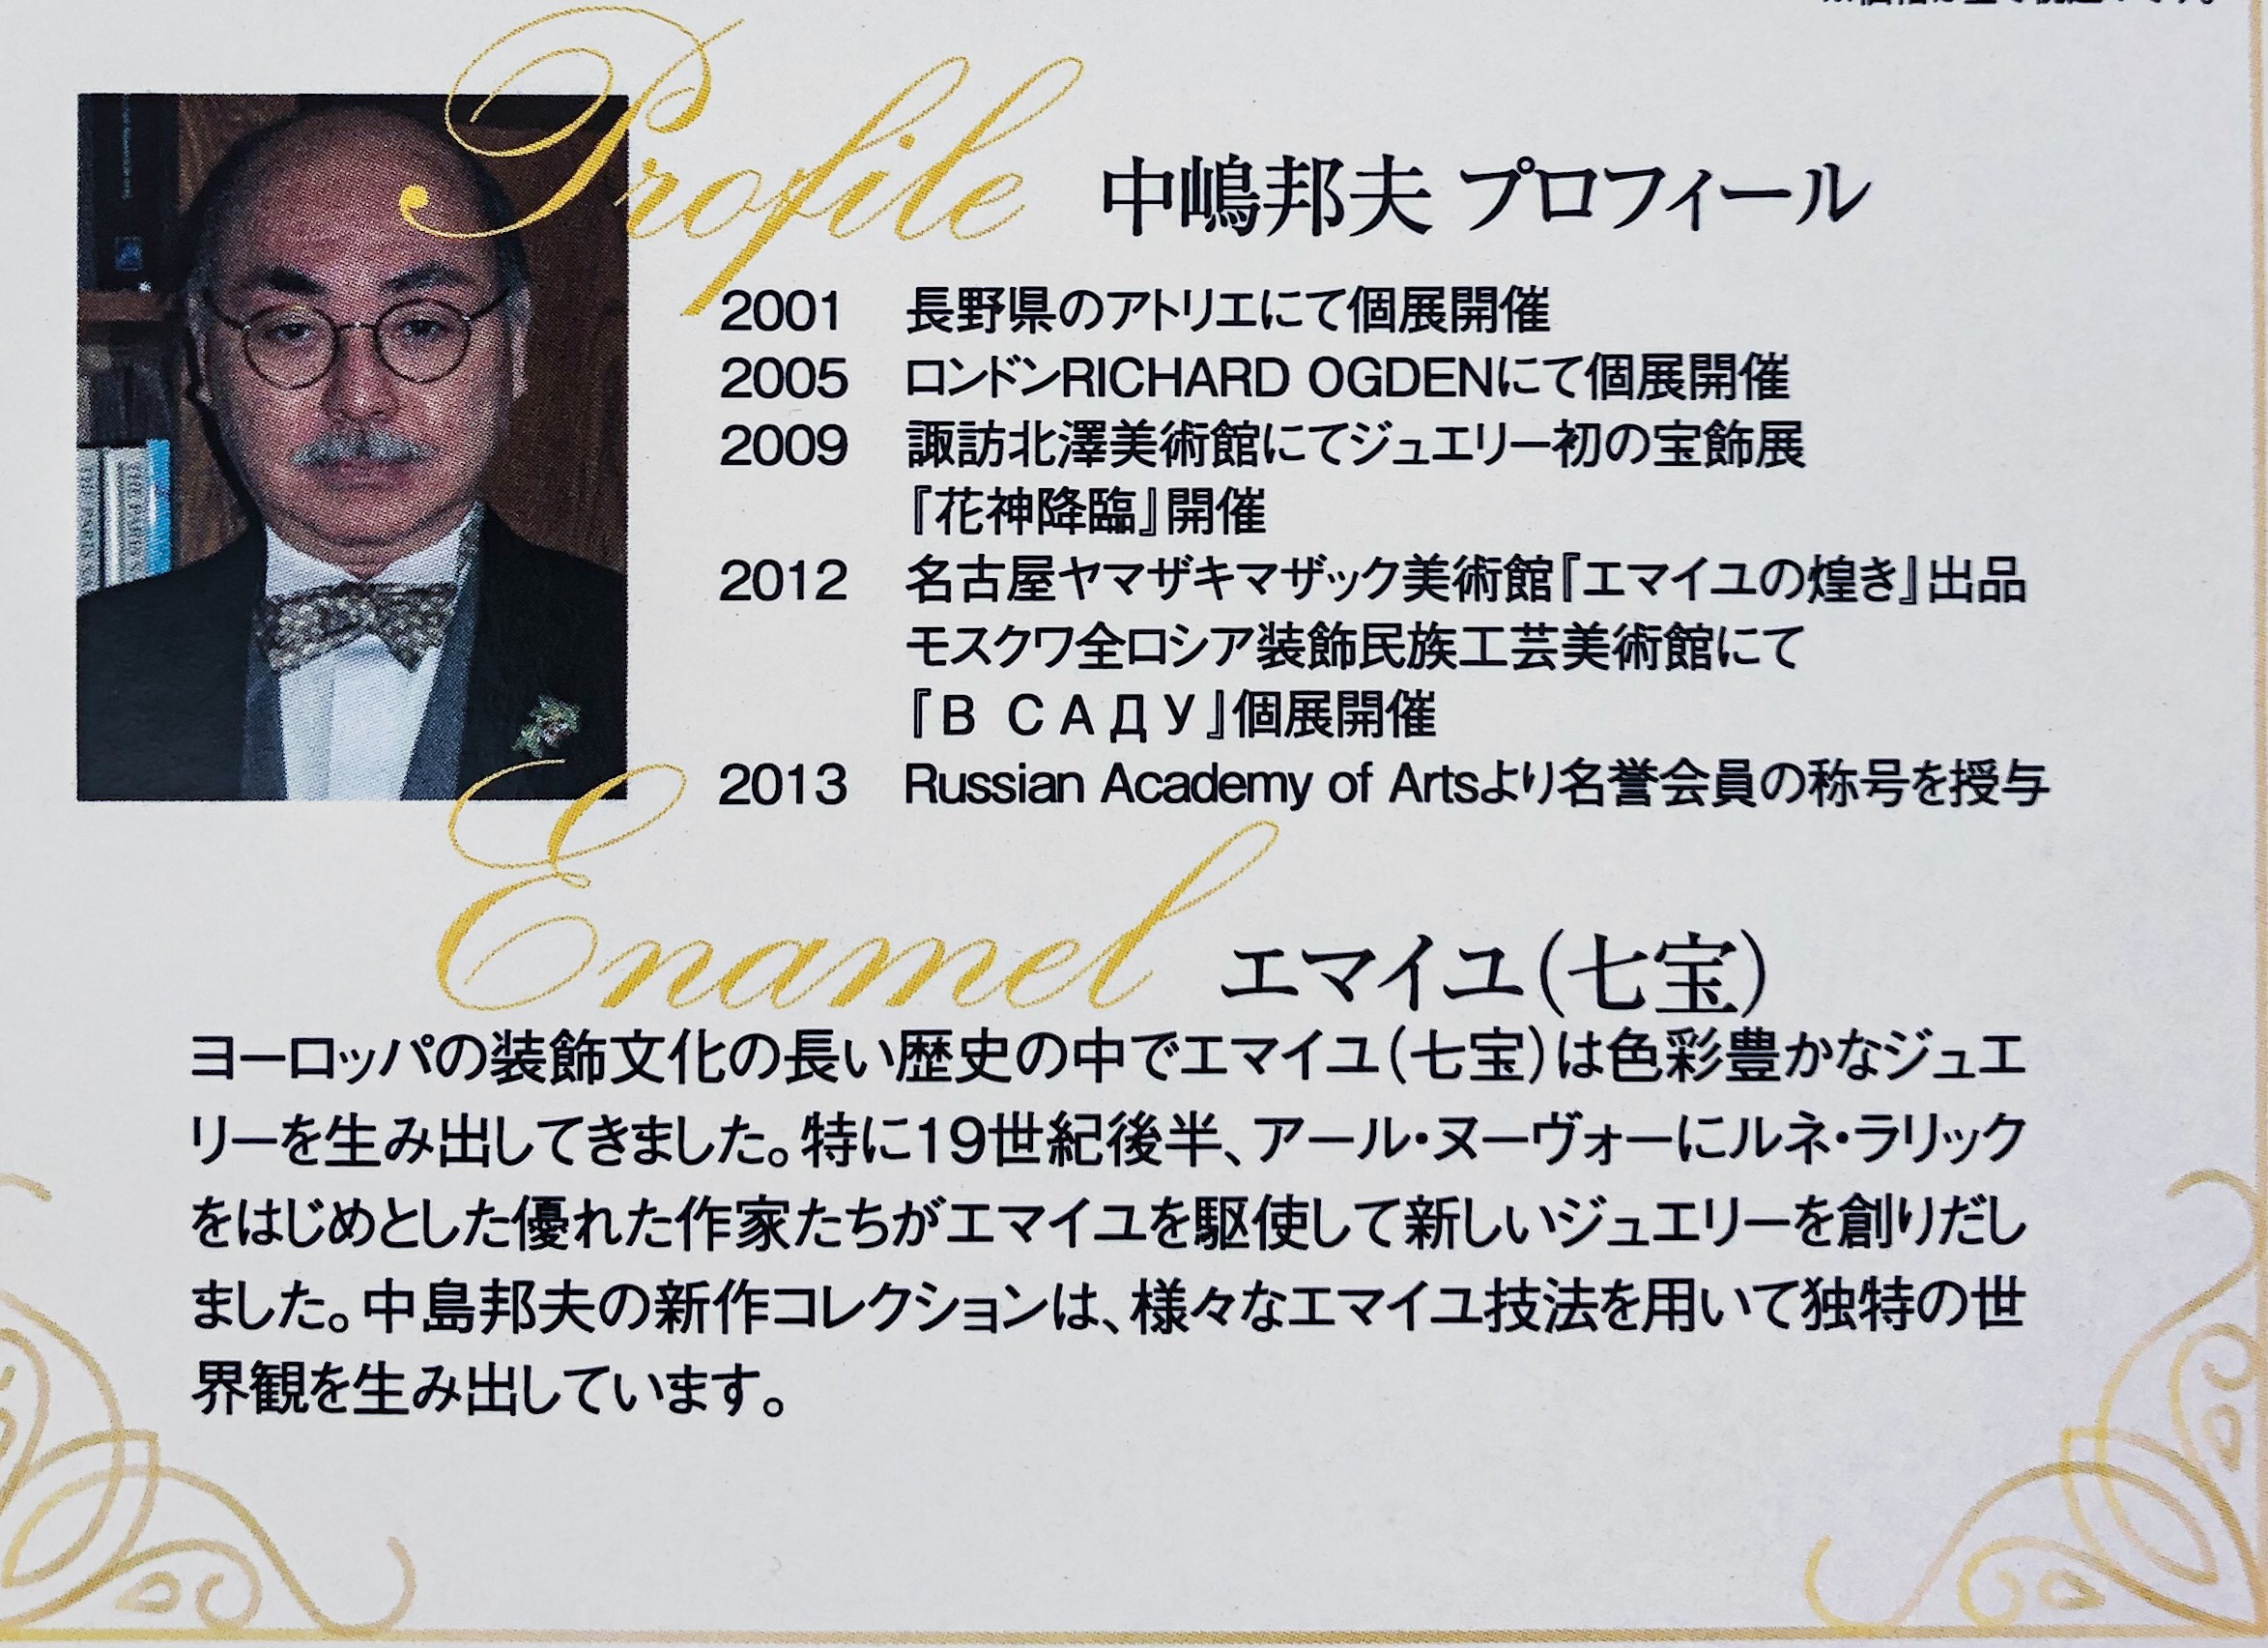 Profile 中嶋邦夫 プロフィール
2001 長野県のアトリエにて個展開催
2005 ロンドンRICHARD OGDENにて個展開催
2009 諏訪北澤美術館にてジュエリー初の宝飾展
『花神降臨』開催
2012 名古屋ヤマザキマザック美術館『エマイユの煌き』出品
モスクワ全ロシア装飾民族工芸美術館にて
『В САДУ』個展開催
2013 Russian Academy of Artsより名誉会員の称号を授与
Enamel エマイユ(七宝)
ヨーロッパの装飾文化の長い歴史の中でエマイユ(七宝)は色彩豊かなジュエ
リーを生み出してきました。特に19世紀後半、アール・ヌーヴォーにルネ・ラリック
をはじめとした優れた作家たちがエマイユを駆使して新しいジュエリーを創りだし
ました。中島邦夫の新作コレクションは、様々なエマイユ技法を用いて独特の世
界観を生み出しています。